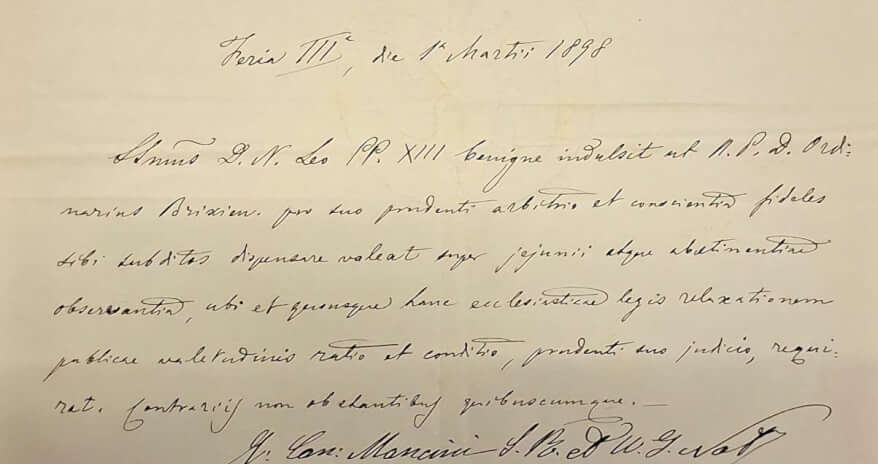 Feria III^a, die 1^a Martii 1898
SSmus D. N. Leo PP. XIII benigne indulsit ut R. P. D. Ordi-
narius Brixien. pro suo prudenti arbitrio et conscientia fideles
sibi subditos dispensare valeat super jejunii atque abstinentiae
observantia, ubi et quousque hanc ecclesiasticae legis relaxationem
publicae valetudinis ratio et conditio, prudenti suo judicio, requi-
rat. Contrariis non obstantibus quibuscumque. —
Can: Mancini S. R. et U. I. Not.